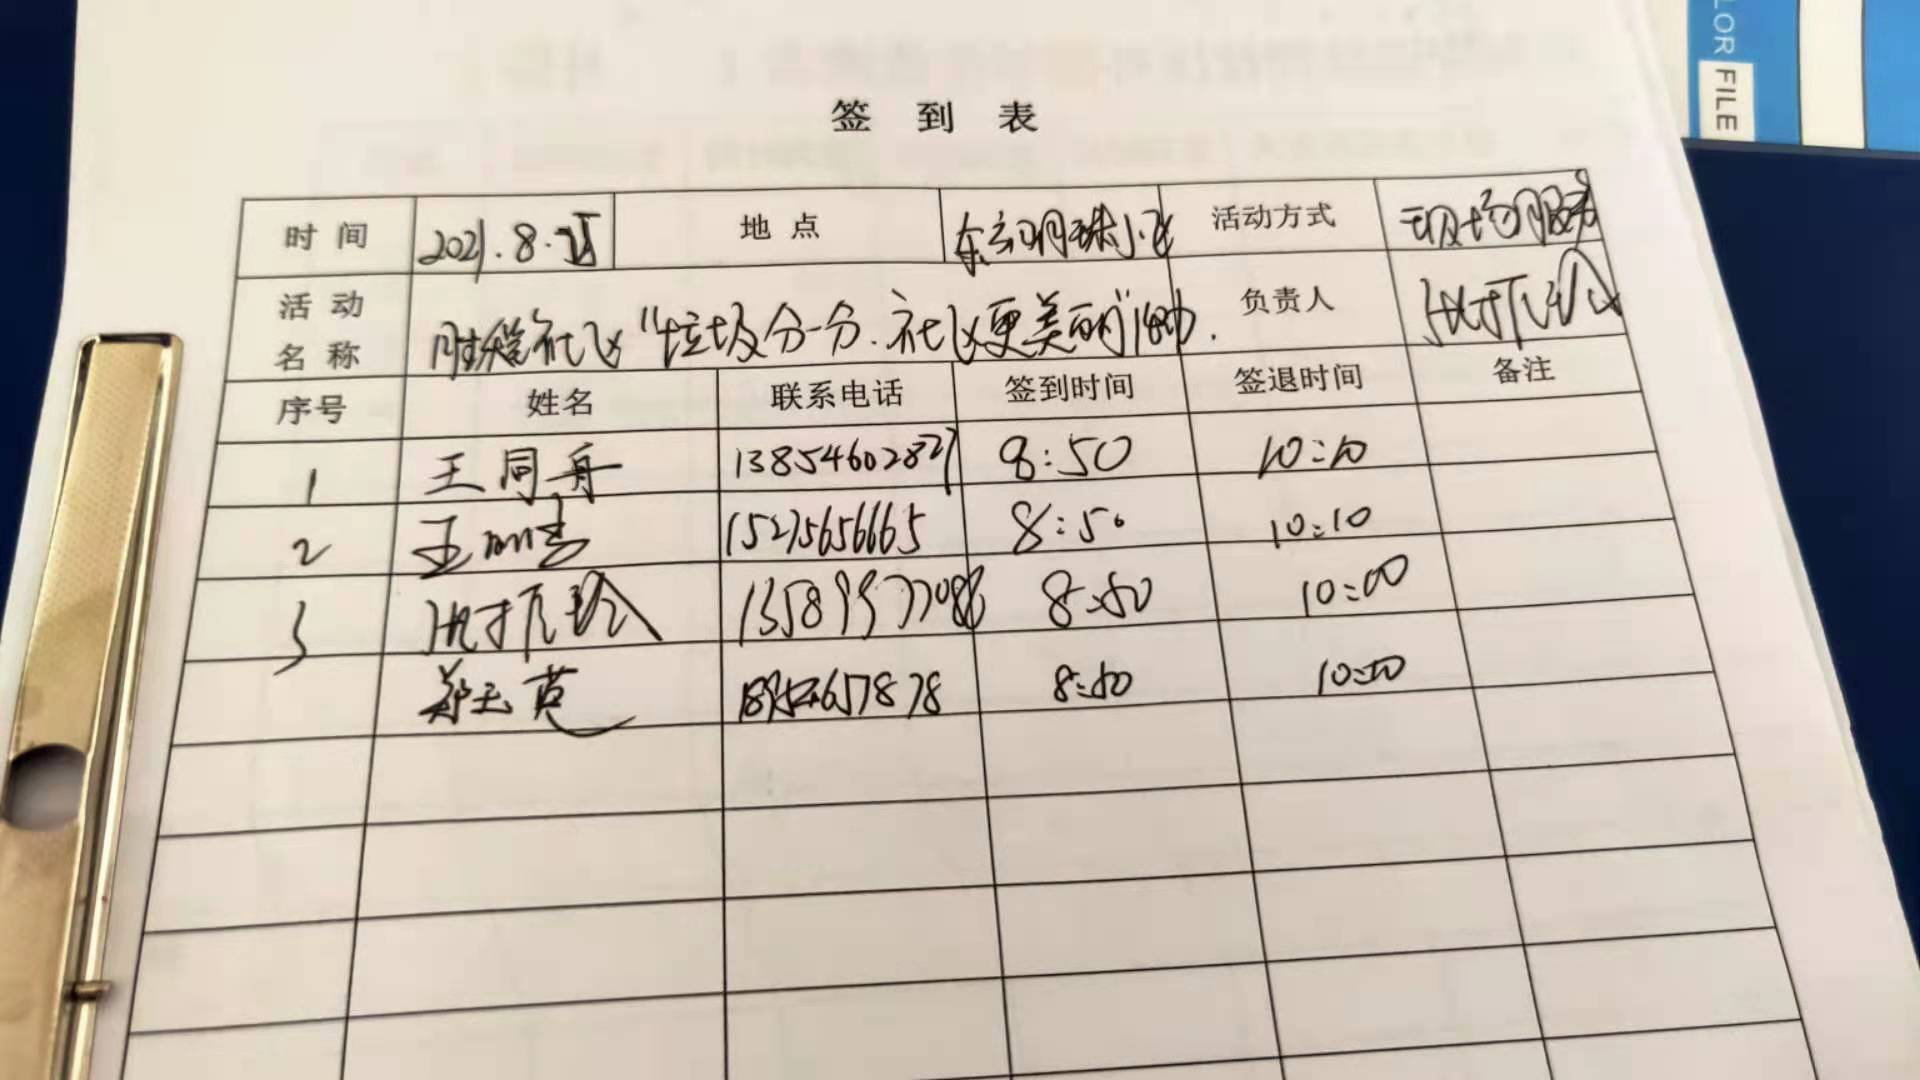 LOR FILE
签 到 表
时 间 2021.8. 地 点 东方明珠小区 活动方式 现场服务
活 动 名 称 社区“垃圾分一分.社区更美丽”活动. 负责人
序号 姓名 联系电话 签到时间 签退时间 备注
1 王同舟 13854602827 8:50 10:10
2 王 15275656665 8:50 10:10
3 8:50 10:00
郑玉英 8:50 10:00